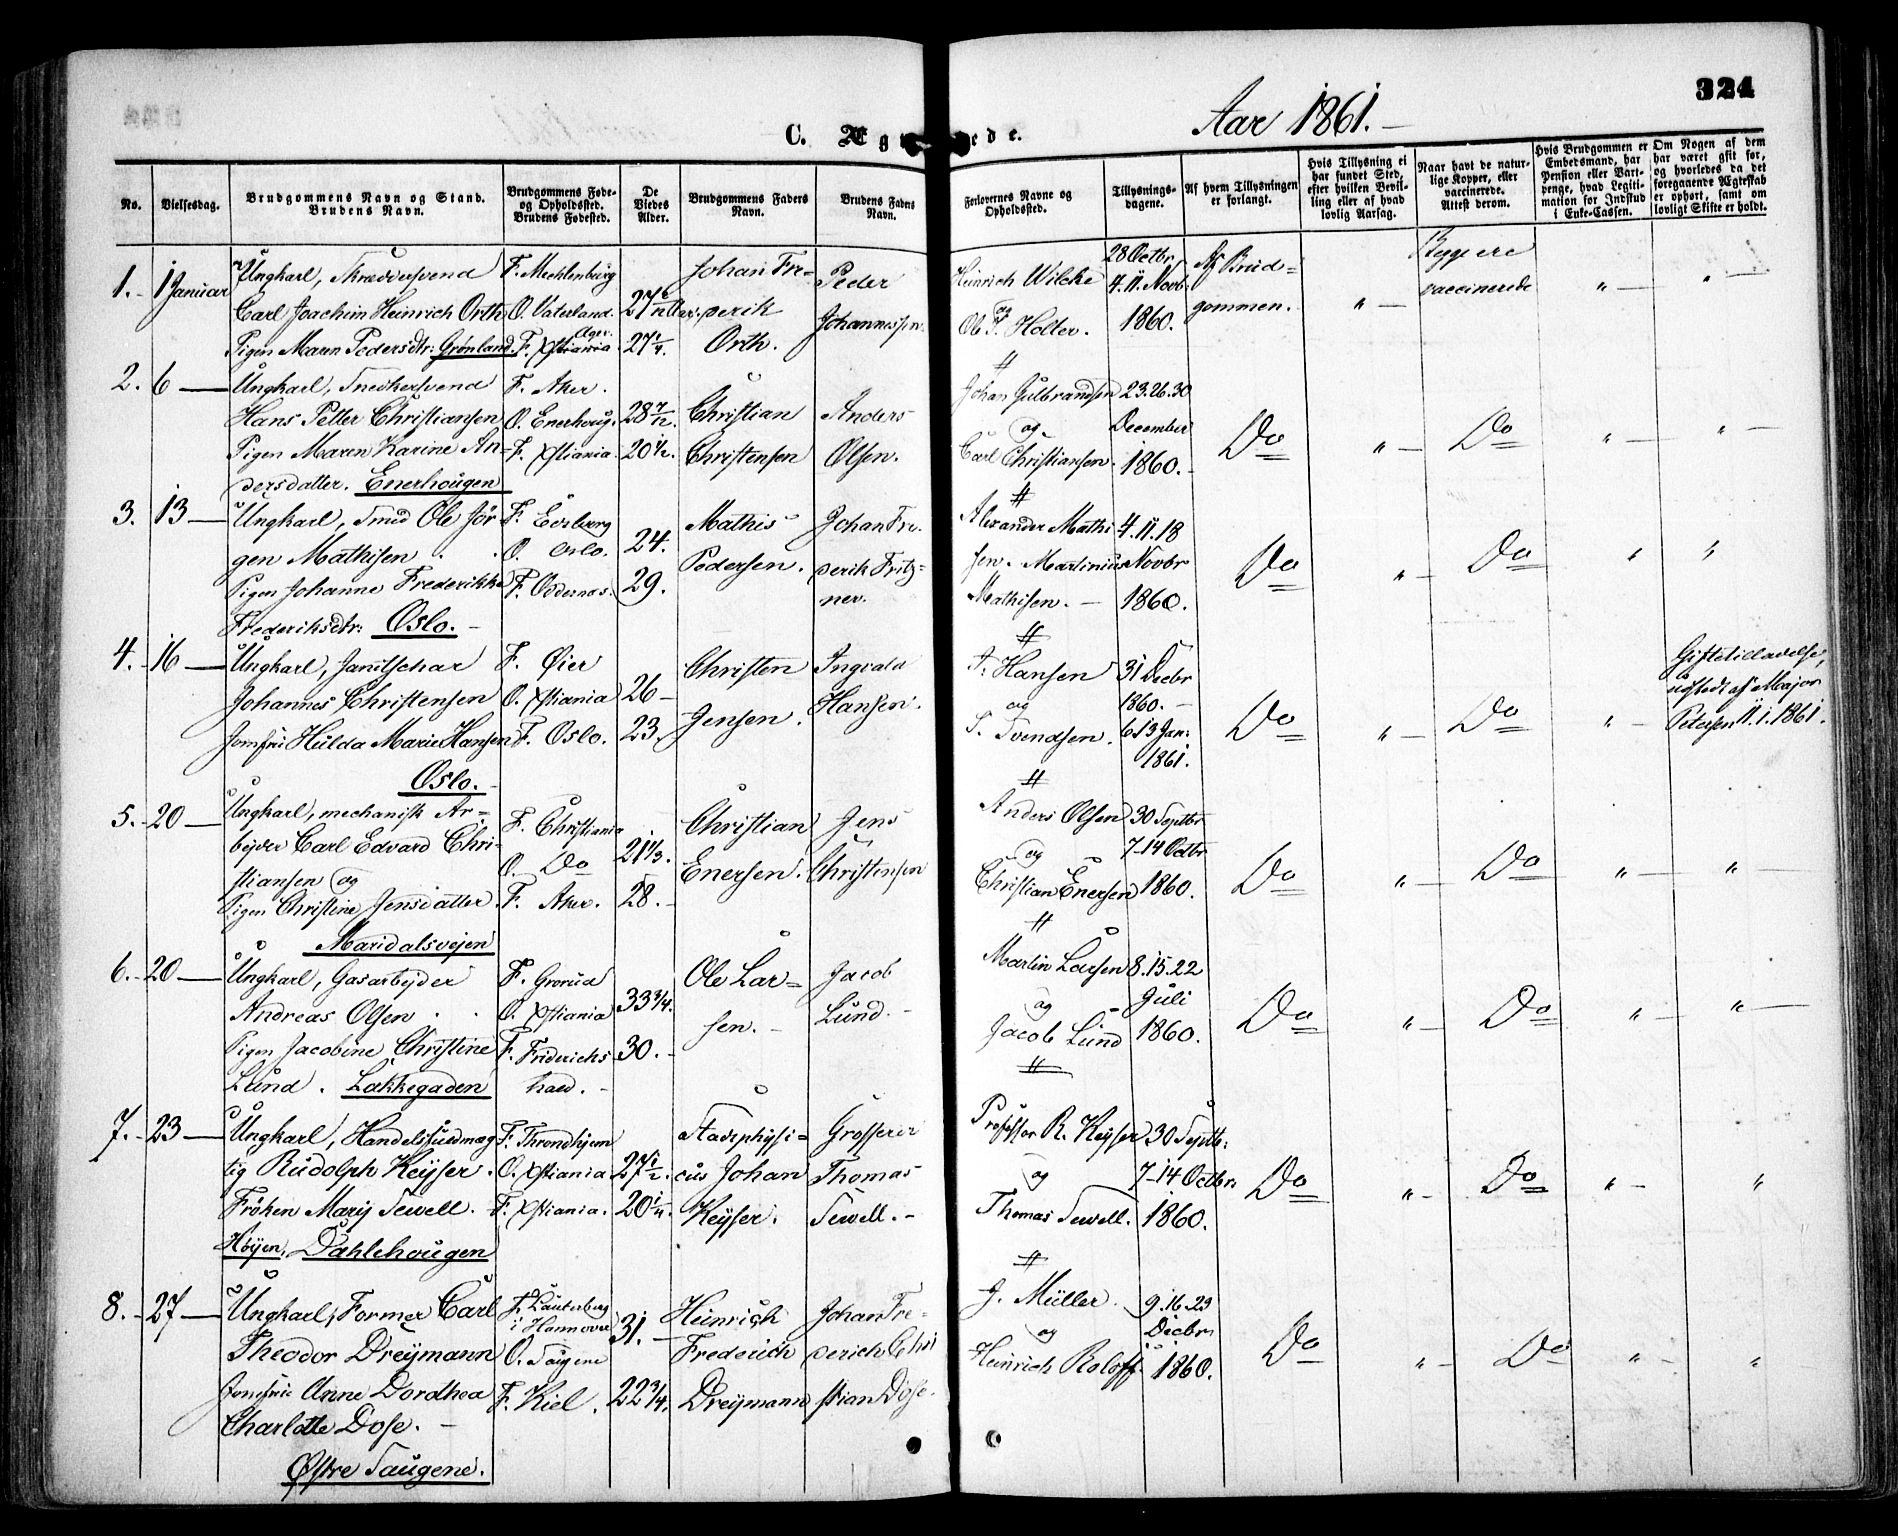 324
Aar 1861.
C. Ægteviede.
No.
Vielsesdag.
Brudgommens Navn og Stand.
Brudens Navn.
Brudgommens Føde-
og Opholdssted.
Brudens Fødested.
De
Viedes
Alder.
Brudgommens Faders
Navn.
Brudens Faders
Navn.
Forlovernes Navne og
Opholdssted.
Tillysnings-
dagene.
Af hvem Tillysningen
er forlangt.
Hvis Tillysning ei
har fundet Sted,
efter hvilken Bevil-
ling eller af hvad
lovlig Aarsag.
Naar havt de natur-
lige Kopper, eller
vaccinerede.
Attest derom.
Hvis Brudgommen er
Embedsmand, har
Pension eller Vart-
penge, hvad Legiti-
mation for Indskud
i Enke-Cassen.
Om Nogen af dem
har været gift før,
og hvorledes da det
foregaaende Ægteskab
er ophørt, samt om
lovligt Skifte er holdt.
1. 1 Januar
Ungkarl, Skræddersvend
Carl Joachim Heinrich Orth
Pigen Maren Pedersdtr: Grønland
F. Mecklenburg
O. Vaterland.
Ager.
F. Xstiania.
27 1/4.
Johan Fre-
derik
Orth.
Peder
Johannessen.
Heinrich Wilcke
Ole Holter.
28 Octbr
4. 11. Novb.
1860.
Af Brud-
gommen.
" —
Begge ere
vaccinerede
" —
" —
2. 6 —
Ungkarl, Snedkersvend
Hans Petter Christiansen
Pigen Maren Karine An-
dersdatter. Enerhougen
F. Aker.
O. Enerhoug.
F. Xstiania.
28 7/12.
20 1/2.
Christian
Christensen
Anders
Olsen.
Johan Gulbrandsen
og
Carl Christiansen.
23. 26. 30
December
1860.
Do
" —
Do
" —
" —
3. 13 —
Ungkarl, Smed Ole Jør-
gen Mathisen
Pigen Johanne Frederikke
Frederiksdtr: Oslo.
F. Eidsberg
O. Oslo.
F. Oddernes.
24.
29.
Mathis
Pedersen.
Johan Fre-
derik Fritz-
ner.
Alexander Mathi-
sen. Martinius
Mathisen.
4. 11. 18
Novbr
1860.
Do
" —
Do
"
"
4. 16 —
Ungkarl, Janitschar
Johannes Christensen
Jomfru Hulda Marie Hansen
Oslo.
F. Øier
O. Xstiania
F. Oslo.
26 —
23.
Christen
Jensen.
Ingvald
Hansen.
Hansen
og
S. Svendsen.
31 Decbr
1860.
6. 13 Jan:
1861.
Do
" —
Do
" —
Giftetilladelse,
udstedt af Major
Petersen 11. 1. 1861.
5. 20 —
Ungkarl, mechanisk Ar-
beider Carl Edvard Chri-
stiansen og
Pigen Christine Jensdatter.
Maridalsvejen
F. Christiania
O. Do
F. Aker.
21 1/3.
28.
Christian
Enersen.
Jens
Christensen
Anders Olsen
og
Christian Enersen
30 Septbr
7-14 Octbr
1860.
Do
" —
Do
" —
" —
6. 20 —
Ungkarl, Gasarbeider
Andreas Olsen
Pigen Jacobine Christine
Lund. Lakkegaden
F. Grorud
O. Xstiania
F. Friderichs
hald.
33 3/4.
30.
Ole Lar-
sen.
Jacob
Lund.
Martin Larsen
og
Jacob Lund
8. 15. 22
Juli
1860.
Do
" —
Do
" —
" —
7. 23 —
Ungkarl, Handelsfuldmæg-
tig Rudolph Keyser.
Frøken Mary Sewell.
Høyen, Dahlehougen
F. Throndhjem
O. Xstiania
F. Xstiania.
27 1/2.
20 1/4.
Stadsphysi-
cus Johan
Keyser.
Grosserer
Thomas
Sewell.
Professor R. Keyser
og
Thomas Sewell.
30 Septb:
7-14 Octbr:
1860.
Do
" —
Do
" —
"
8. 27 —
Ungkarl, Former Carl
Theodor Dreymann
Jomfrue Anne Dorothea
Charlotte Dose.
Østre Saugene.
F. Lauterberg
i Hannover
O. Saugene
F. Kiel.
31.
22 3/4.
Heinrich
Frederich
Dreymann
Johan Fre-
derich Chri
stian Dose.
J. Müller.
og
Heinrich Roloff
9. 16. 23
Decbr
1860.
Do
" —
Do
" —
"